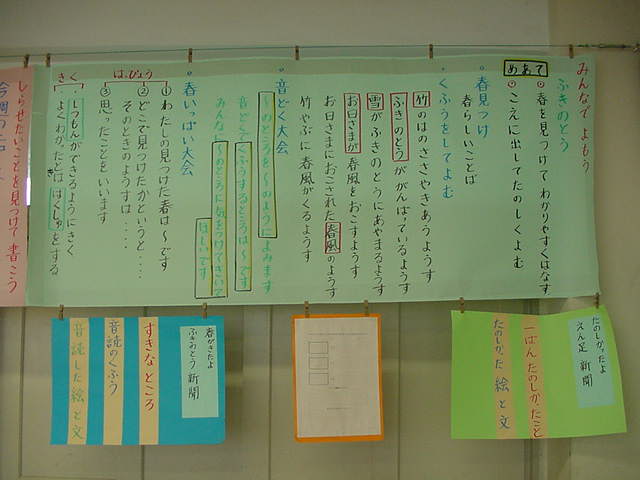 みんなで よもう
ふきのとう
めあて
春を見つけてわかりやすくはなす
こえに出してたのしくよむ
春見っけ
春らしいことば
くふうをしてよむ
竹のはのささやきあうようす
ふきのとうががんばっているようす
雪がふきのとうにあやまるようす
お日さまが春風をおこすようす
お日さまにおこされた春風のようす
竹やぶに春風がくるようす
音どく大会
〜のところを〜のようによみます
音どくでくふうするところは〜です
みんなに〜のところに気をつけてきいて
ほしいです
春いっぱい大会
はっぴょう
①わたしの見つけた春は〜です
②どこで見つけたかというと・・・・
そのときのようすは・・・・
③思ったことをいいます
きく
・しつもんができるようにきく
よくわかったときははくしゅをする
しらせたいことを見つけて書こう
春がきたよ
ふきのとう新聞
すきなところ
音読のくふう
音読した絵と文
たのしかったよ
えん足 新聞
一ばんたのしかったこと
たのしかった 絵と文